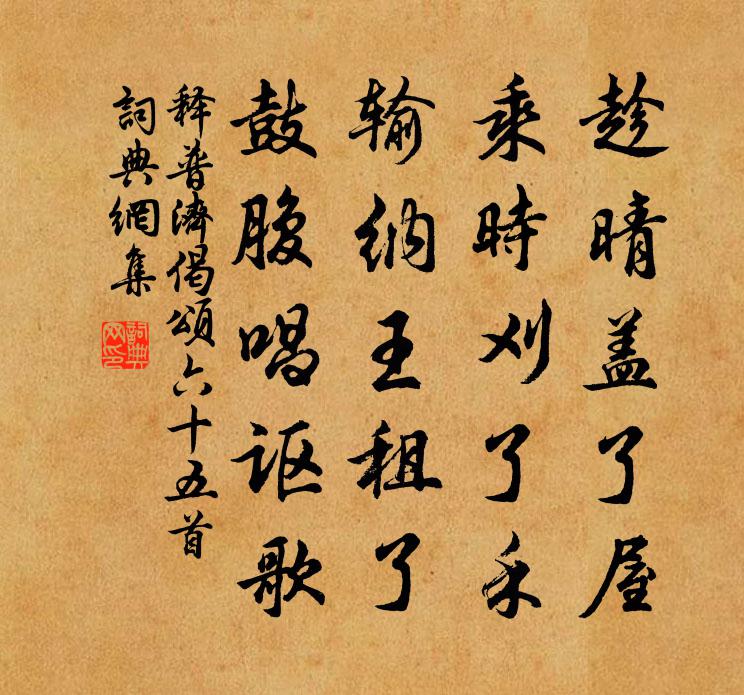 趁晴盖了屋
乘時刈了禾
输纳王租了
鼓腹唱讴歌
释普濟偈頌六十五首
詞典網集
詞典
网印